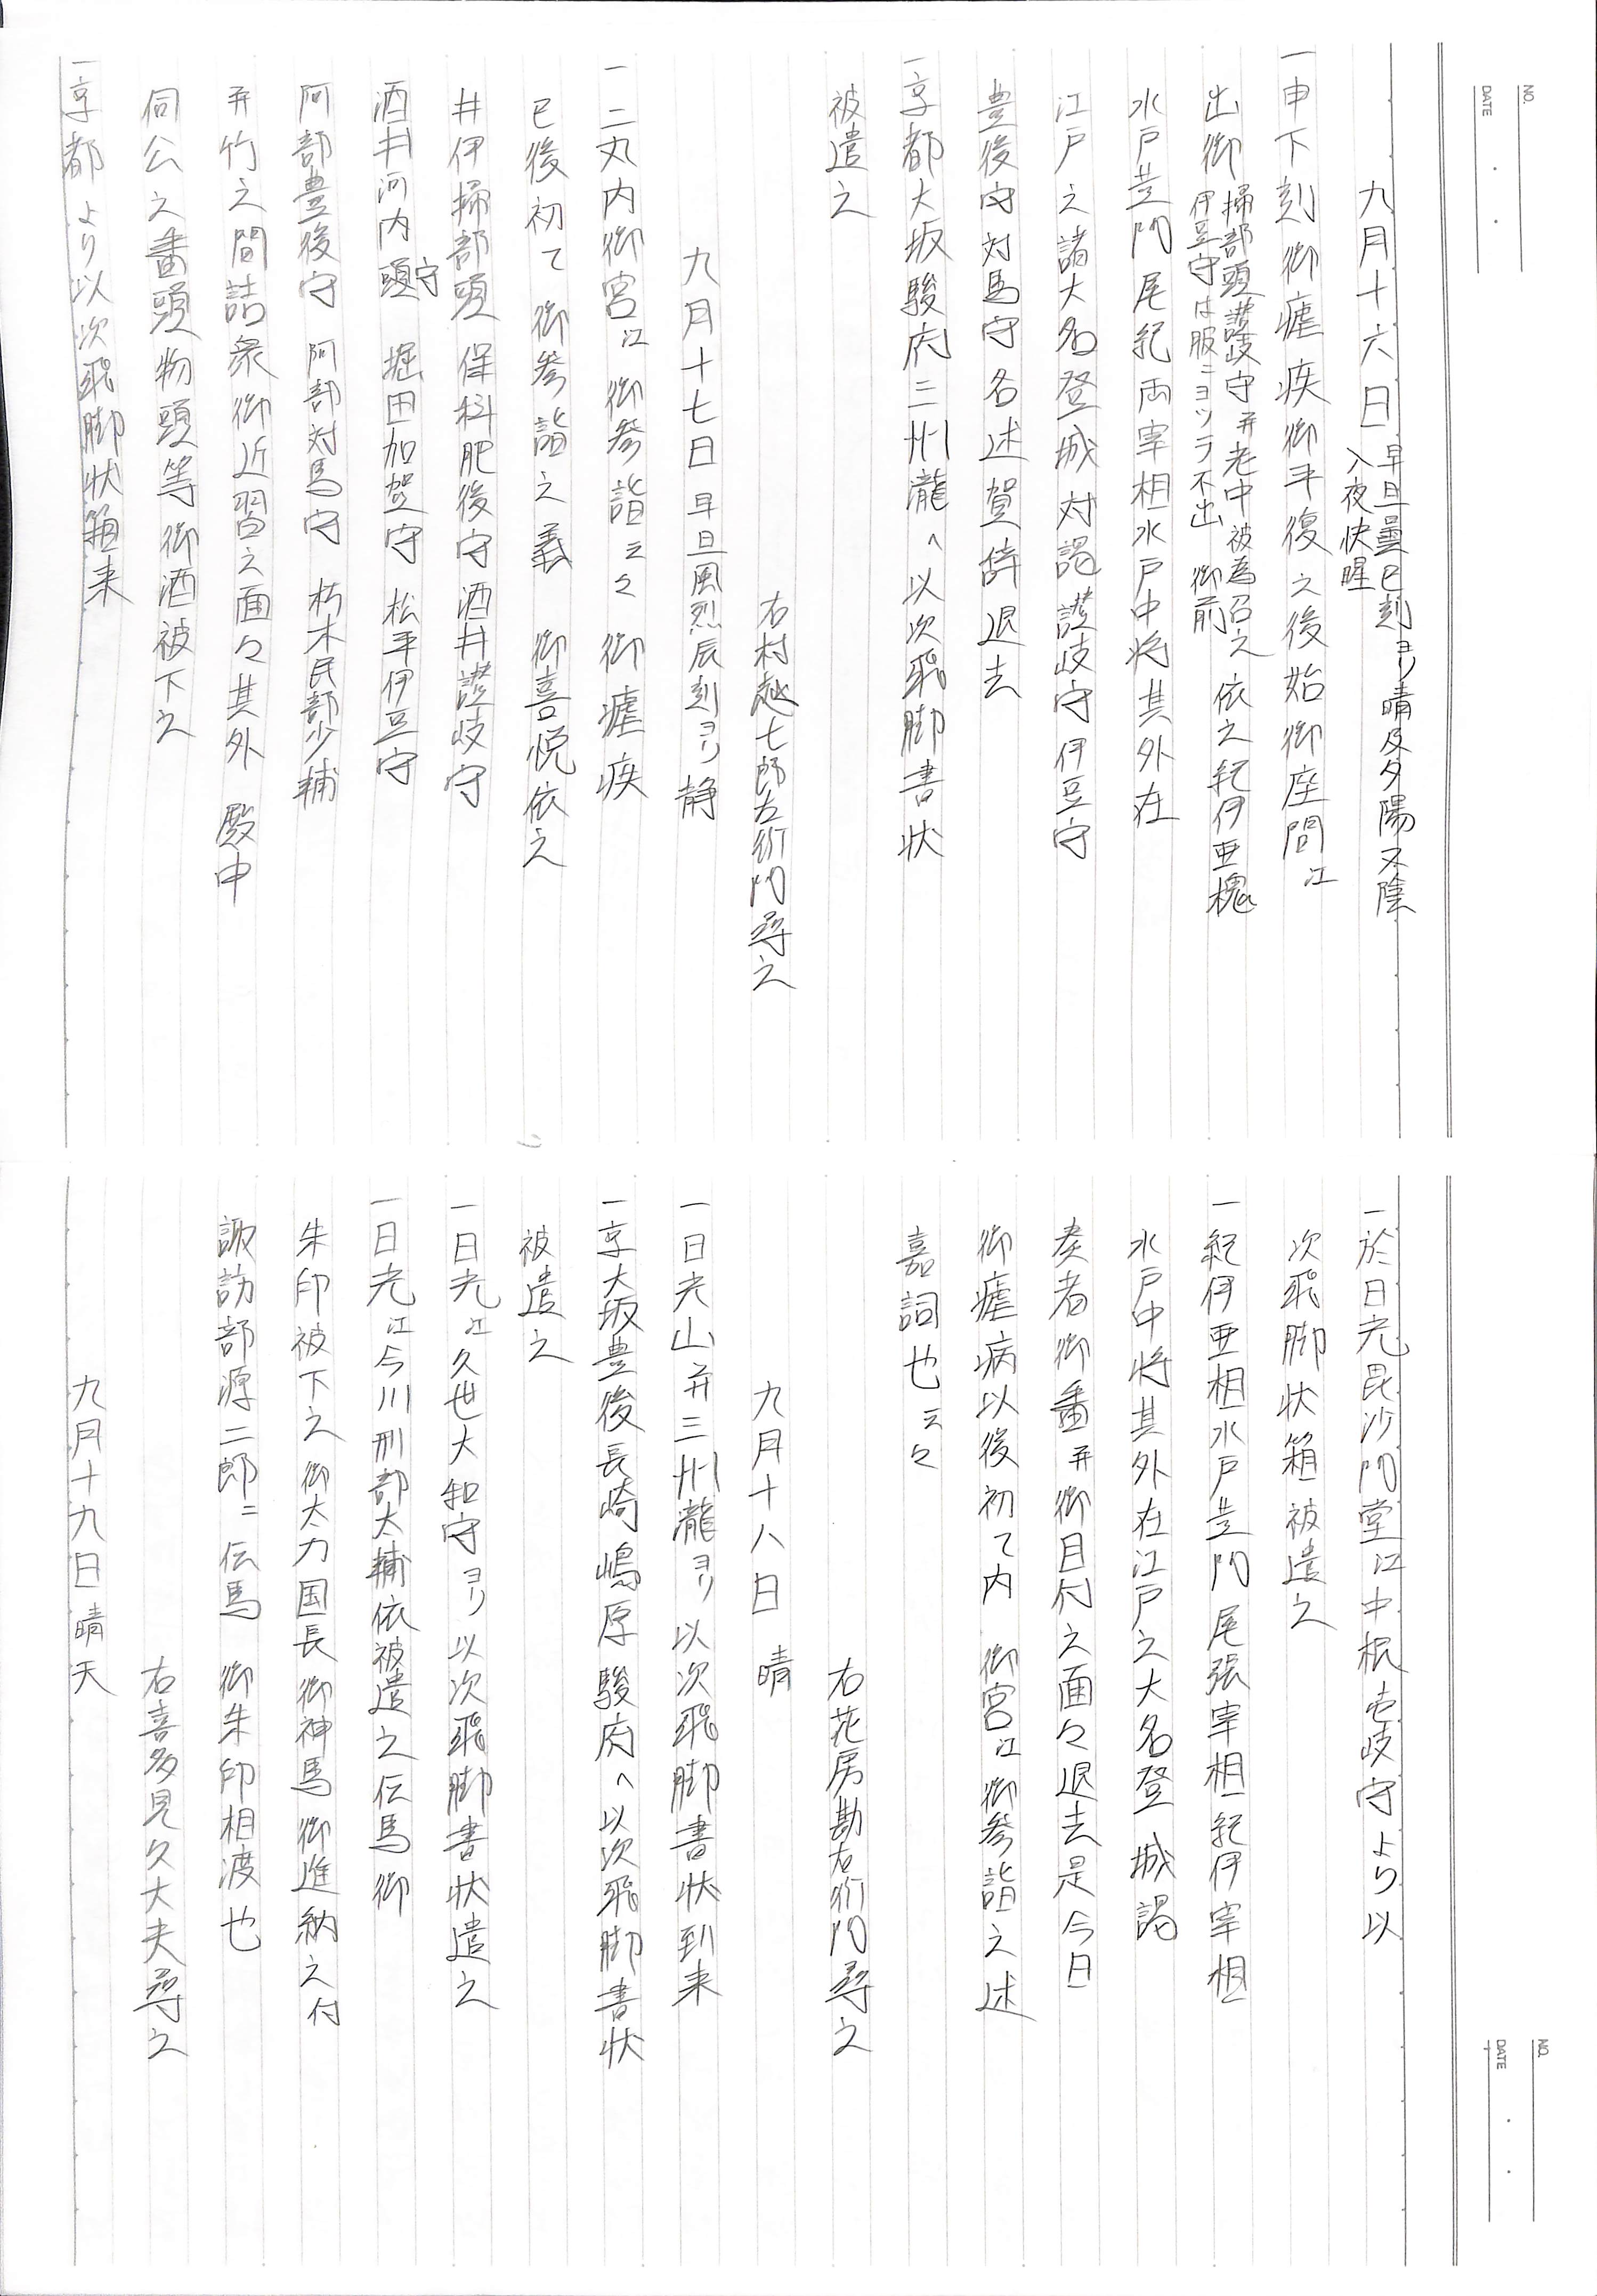 NO.
DATE
九月十六日 早旦曇巳刻ヨリ晴及夕陽又陰
入夜快晴
一申下刻御瘧疾御平復之後始御座間江
出御 掃部頭讃岐守并老中被為召之 依之紀伊亜槐
伊豆守は服ニヨツラ不出 御前
水戸黄門尾紀両宰相水戸中将其外在
江戸之諸大名登城対謁讃岐守伊豆守
豊後守対馬守各述賀詞退去
一京都大坂駿府三州瀧へ以次飛脚書状
被遣之
右村越七郎左衛門尋之
九月十七日 早旦風烈辰刻ヨリ静
一二丸内御宮江 御参詣云々 御瘧疾
已後初て 御参詣之義 御喜悦依之
井伊掃部頭 保科肥後守 酒井讃岐守
酒井河内頭守 堀田加賀守 松平伊豆守
阿部豊後守 阿部対馬守 朽木民部少輔
并竹之間詰衆御近習之面々其外 殿中
伺公之番頭物頭等御酒被下之
一京都より以次飛脚状箱来
NO.
DATE
一於日光毘沙門堂江中根壱岐守より以
次飛脚状箱被遣之
一紀伊亜相水戸黄門尾張宰相紀伊宰相
水戸中将其外在江戸之大名登 城謁
奏者御番并御目付之面々退去是今日
御瘧病以後初て内 御宮江御参詣之述
嘉詞也云々
右花房勘右衛門尋之
九月十八日 晴
一日光山并三州瀧ヨリ以次飛脚書状到来
一京大坂豊後長崎嶋原駿府へ以次飛脚書状
被遣之
一日光江久世大和守ヨリ以次飛脚書状遣之
一日光江今川刑部太輔依被遣之伝馬御
朱印被下之御太刀国長御神馬御進納之付
諏訪部源二郎ニ伝馬 御朱印相渡也
右喜多見久大夫尋之
九月十九日 晴天